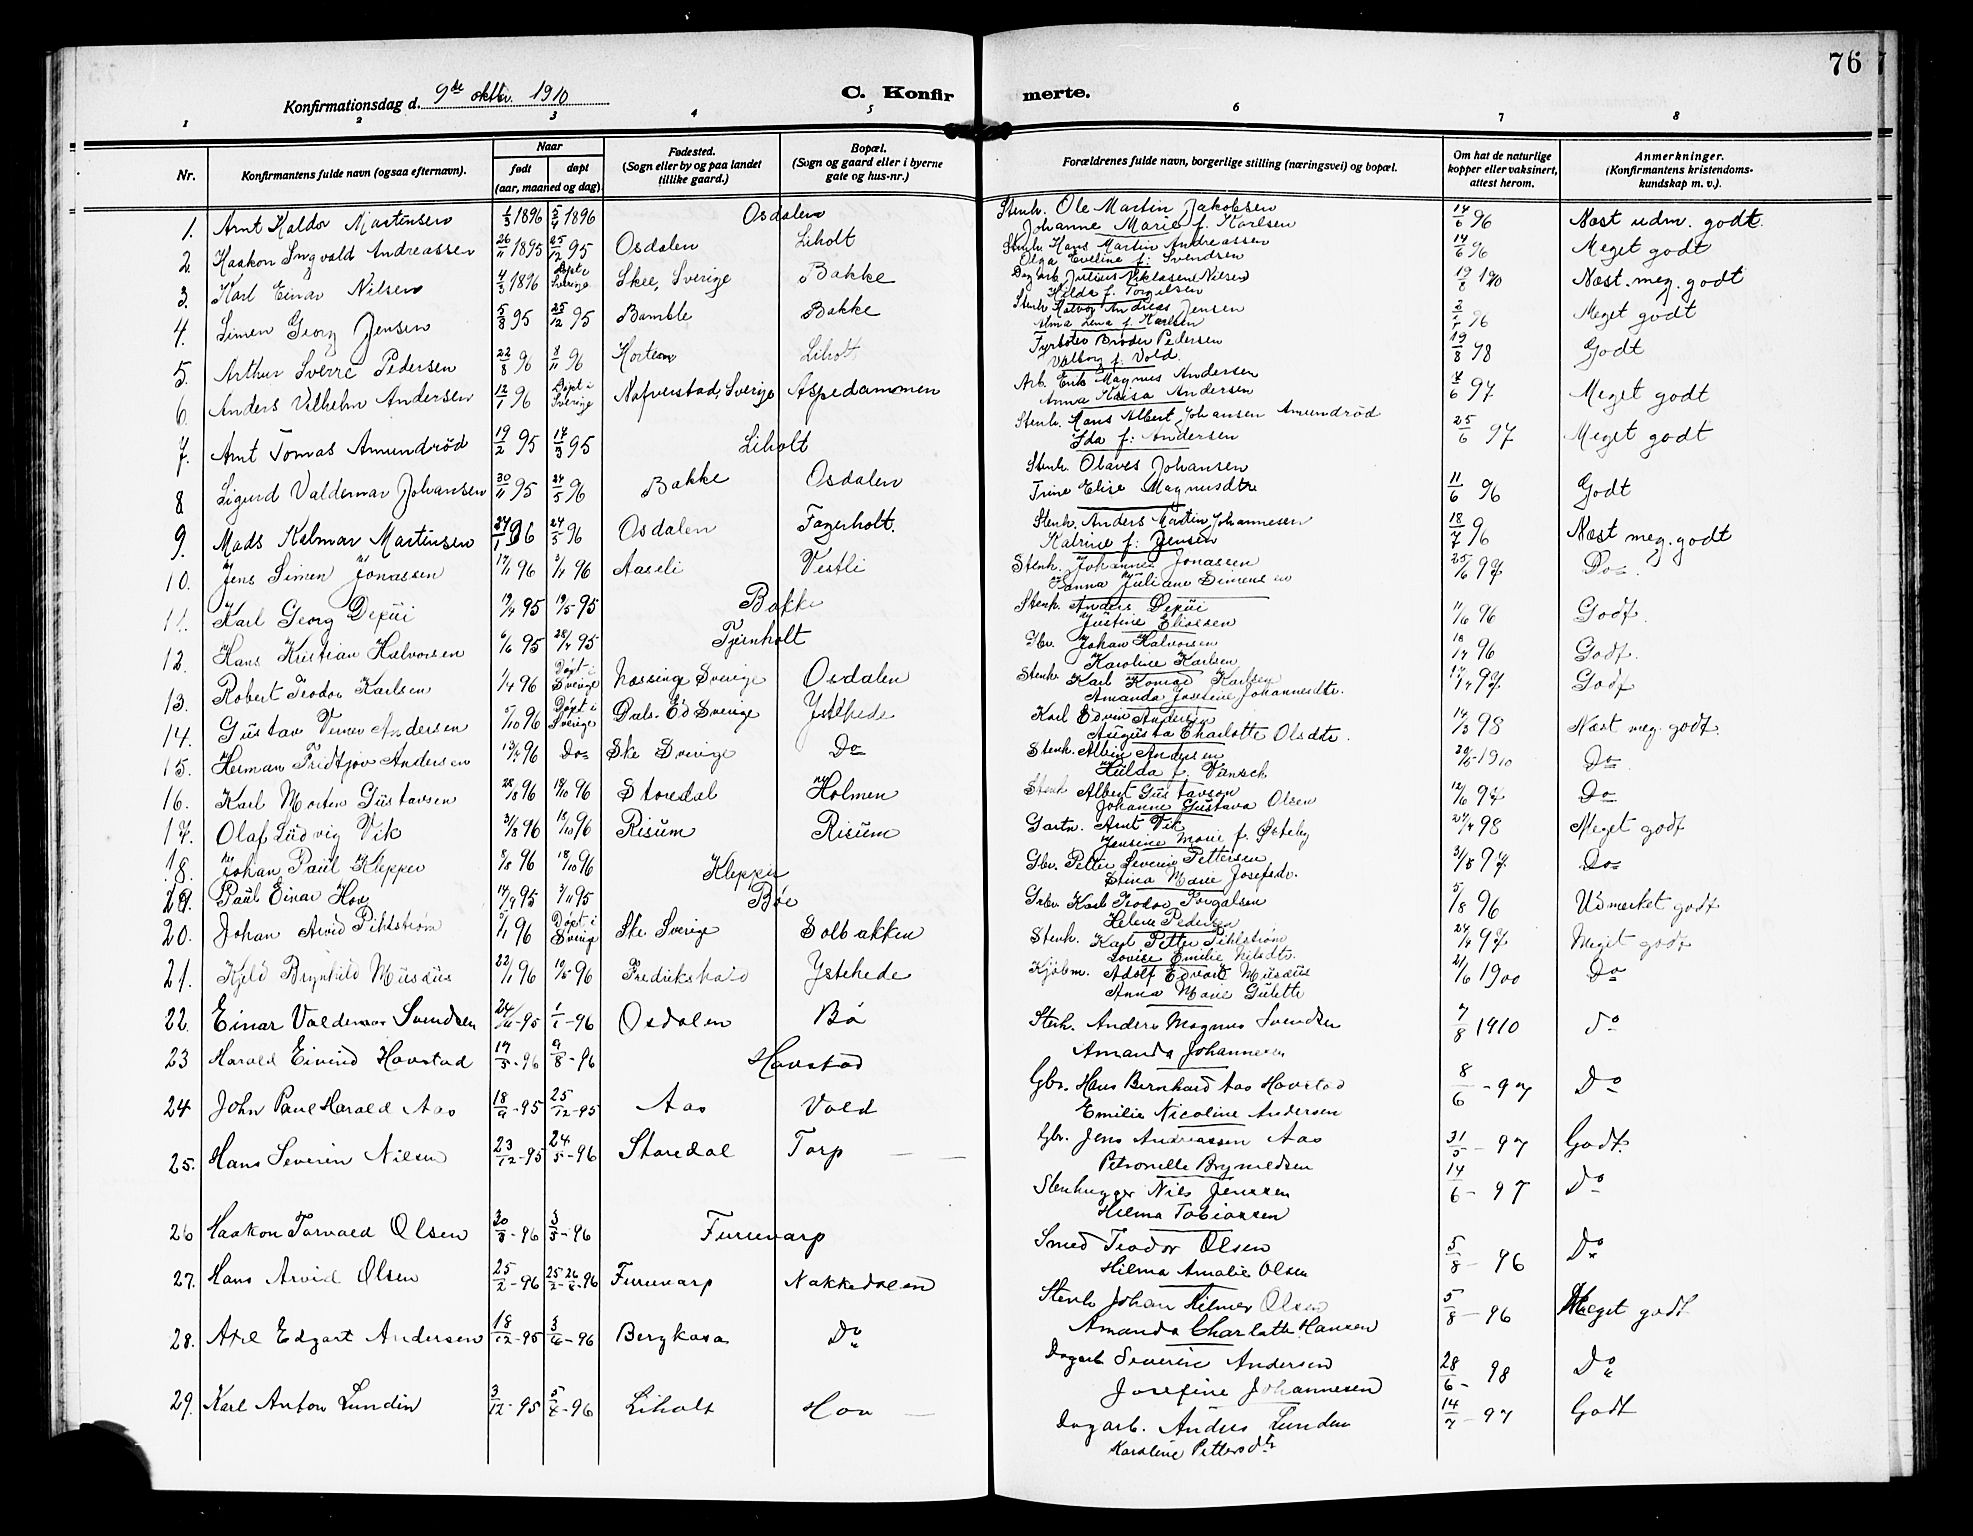 76
Konfirmationsdag d. 9de oktbr. 1910
C. Konfir merte.
1 2 3 4 5 6 7 8
Nr. Konfirmantens fulde navn (ogsaa efternavn). Naar født døpt (aar, maaned og dag). Fødested. (Sogn eller by og paa landet tillike gaard.) Bopæl. (Sogn og gaard eller i byerne gate og hus-nr.) Forældrenes fulde navn, borgerlige stilling (næringsvei) og bopæl. Om hat de naturlige kopper eller vaksinert, attest herom. Anmerkninger. (Konfirmantens kristendoms-kundskap m. v.).
1. Arnt Haldor Martinsen 1/3 1896 5/4 1896 Osdalen Stenh. Ole Martin Jakobsen 14/6 96 Næst udm. godt.
Johanne Marie f. Karlsen
2. Haakon Ingvald Andreassen 26/11 1895 25/12 95 Osdalen Liholt Stenh. Hans Martin Andreassen 14/6 96 Meget godt
Olga Eveline f. Svendsen
3. Karl Einar Nilsen 4/3 1896 Døpt i Sverige Skee, Sverige Bakke Dagarb. Julius Niklasen Nilsen 19/8 1910 Næst. meg. godt
Hilda f. Torgilsen
4. Simen Georg Jensen 5/8 95 25/12 95 Bamble Bakke Stenh. Halvor Andreas Jensen 96 Meget godt
Alma Lena f. Karlsen
5. Arthur Sverre Pedersen 22/8 96 8/11 96 Horten Liholt Fyrbøter Brøder Pedersen 19/8 98 Godt
Valborg f. Vold.
6. Anders Vilhelm Andersen 12/1 96 Døpt i Sverige Nafverstad, Sverige Aspedammen Arb. Erik Magnus Andersen 97 Meget godt
Anna Kaisa Andersen
7. Arnt Tomas Amundrød 19/2 95 17/3 95 Liholt Stenh. Hans Albert Johansen Amundrød 25/6 97 Meget godt
Ida f. Andersen
8 Sigurd Valdemar Johansen 30/11 95 24/5 96 Bakke Osdalen Stenh. Olaves Johansen 11/6 96 Godt
Trine Elise Magnusdtr
9. Mads Halmar Martinsen 27/1 96 24/5 96 Osdalen Fagerholt. Stenh. Anders Martin Johannesen 18/7 96 Næst meg. godt
Katrine f: Jensen
10. Jens Simen Jonassen 17/1 96 3/4 96 Aaseli Vestli Stenh. Johannes Jonassen 25/6 97 Do
Hanna Juliane Simensen
11. Karl Georg Depui 19/4 95 19/5 95 Bakke Stenh. Anders Depui 11/6 96 Godt
Justine Eliassen
12. Hans Kristian Halvorsen 6/6 95 28/7 95 Tjernholt Gbr. Johan Halvorsen 18/7 96 Godt.
Karoline Karlsen
13. Robert Teodor Karlsen 1/4 96 Døpt i Sverige Næssinge Sverige Osdalen Stenh. Karl Konrad Karlsen 97 Godt
Amanda Josefine Johannesdtr.
14. Gustav Verner Andersen 5/10 96 Døpt i Sverige Dals-Ed Sverige Ystehede Karl Edvin Andersen 14/3 98 Næst meg. godt.
Augusta Charlotte Olsdtr.
15. Herman Fridtjov Andersen 96 Do Ske Sverige Do Stenh. Albin Andersen 20/5 1910 Do
Hulda f.
16. Karl Morten Gustavsen 28/8 96 18/10 96 Storedal Holmen Stenh Albert Gustavson 12/6 97 Do
Johanne Gustava Olsen
17. Olaf Ludvig Vik 31/8 96 18/10 96 Risum Risum Gartn. Arnt Vik 27/4 98 Meget godt
Jensine Marie f. Østeby
18. Johan Paul Klepper 8/8 96 18/10 96 Klepper Gbr. Petter Severin Pettersen 31/5 97 Do
Stina Marie Josefsdr.
19. Paul Einar Hov 14/9 95 3/11 95 Bøe Grbr. Karl Teodor Torgalsen 5/8 96 Udmerket godt
Helene Pedersen
20. Johan Arvid Pihlstrøm 5/1 96 Døpt i Sverige Ske Sverige Solbakken Stenh. Karl Petter Pihlstrøm 24/4 97 Meget godt
Lovise Emilie Nilsdtr.
21. Kjeld Brynhild Musæus 22/1 96 10/5 96 Fredrikshald Ystehede Kjøbm. Adolf Edvart Musæus 21/6 1900 Do
Anna Marie Gulette
22. Einar Valdemar Svendsen 95 1/1-96 Osdalen Bø Stenh. Anders Magnus Svendsen 7/8 1910 Do
Amanda Johannesen
23 Harald Eivind Hovstad 19/5-96 9/8-96 Hovstad Gbr. Hans Bernhard Aas Hovstad 8/6-97 Do
Emilie Nicoline Andersen
24 John Paul Harald Aas 18/9-95 25/12-95 Aas Vold Gbr. Jens Andreassen Aas 31/5-97 Godt.
Petronelle Brynildsen
25. Hans Severin Nilsen 23/12-95 24/5-96 Storedal Torp Stenhugger Nils Jensen 14/6-97 Do
Hilma Tobiassen
26 Haakon Torvald Olsen 30/3-96 3/5-96 Furuvarp Smed Teodor Olsen 5/8-96 Do
Hilma Amalie Olsen
27. Hans Arvid Olsen 25/2-96 96 Furuvarp Nakkedalen Stenh Johan Hilmer Olsen 5/8-96 Meget godt
Amanda Charlotte Hansen
28. Axel Edgart Andersen 18/12-95 3/4-96 Bergkasa Do Dagarb Severin Andersen 28/6-98 Do
Josefine Johannesen
29. Karl Anton Lundin 3/12-95 5/4-96 Liholt Hov Dagarb. Anders Lunden 14/7-97 Godt
Karoline Pettersdtr